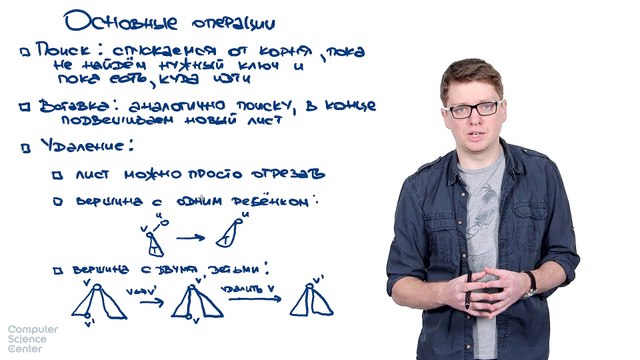 Основные операции
Поиск: спускаемся от корня, пока
не найдём нужный ключ и
пока есть, куда идти
Вставка: аналогично поиску, в конце
подвешиваем новый лист
Удаление:
лист можно просто отрезать
вершина с одним ребёнком:
u u
v
T T
вершина с двумя детьми:
v v↔v' v' удалить v v'
v' v
Computer
Science
Center